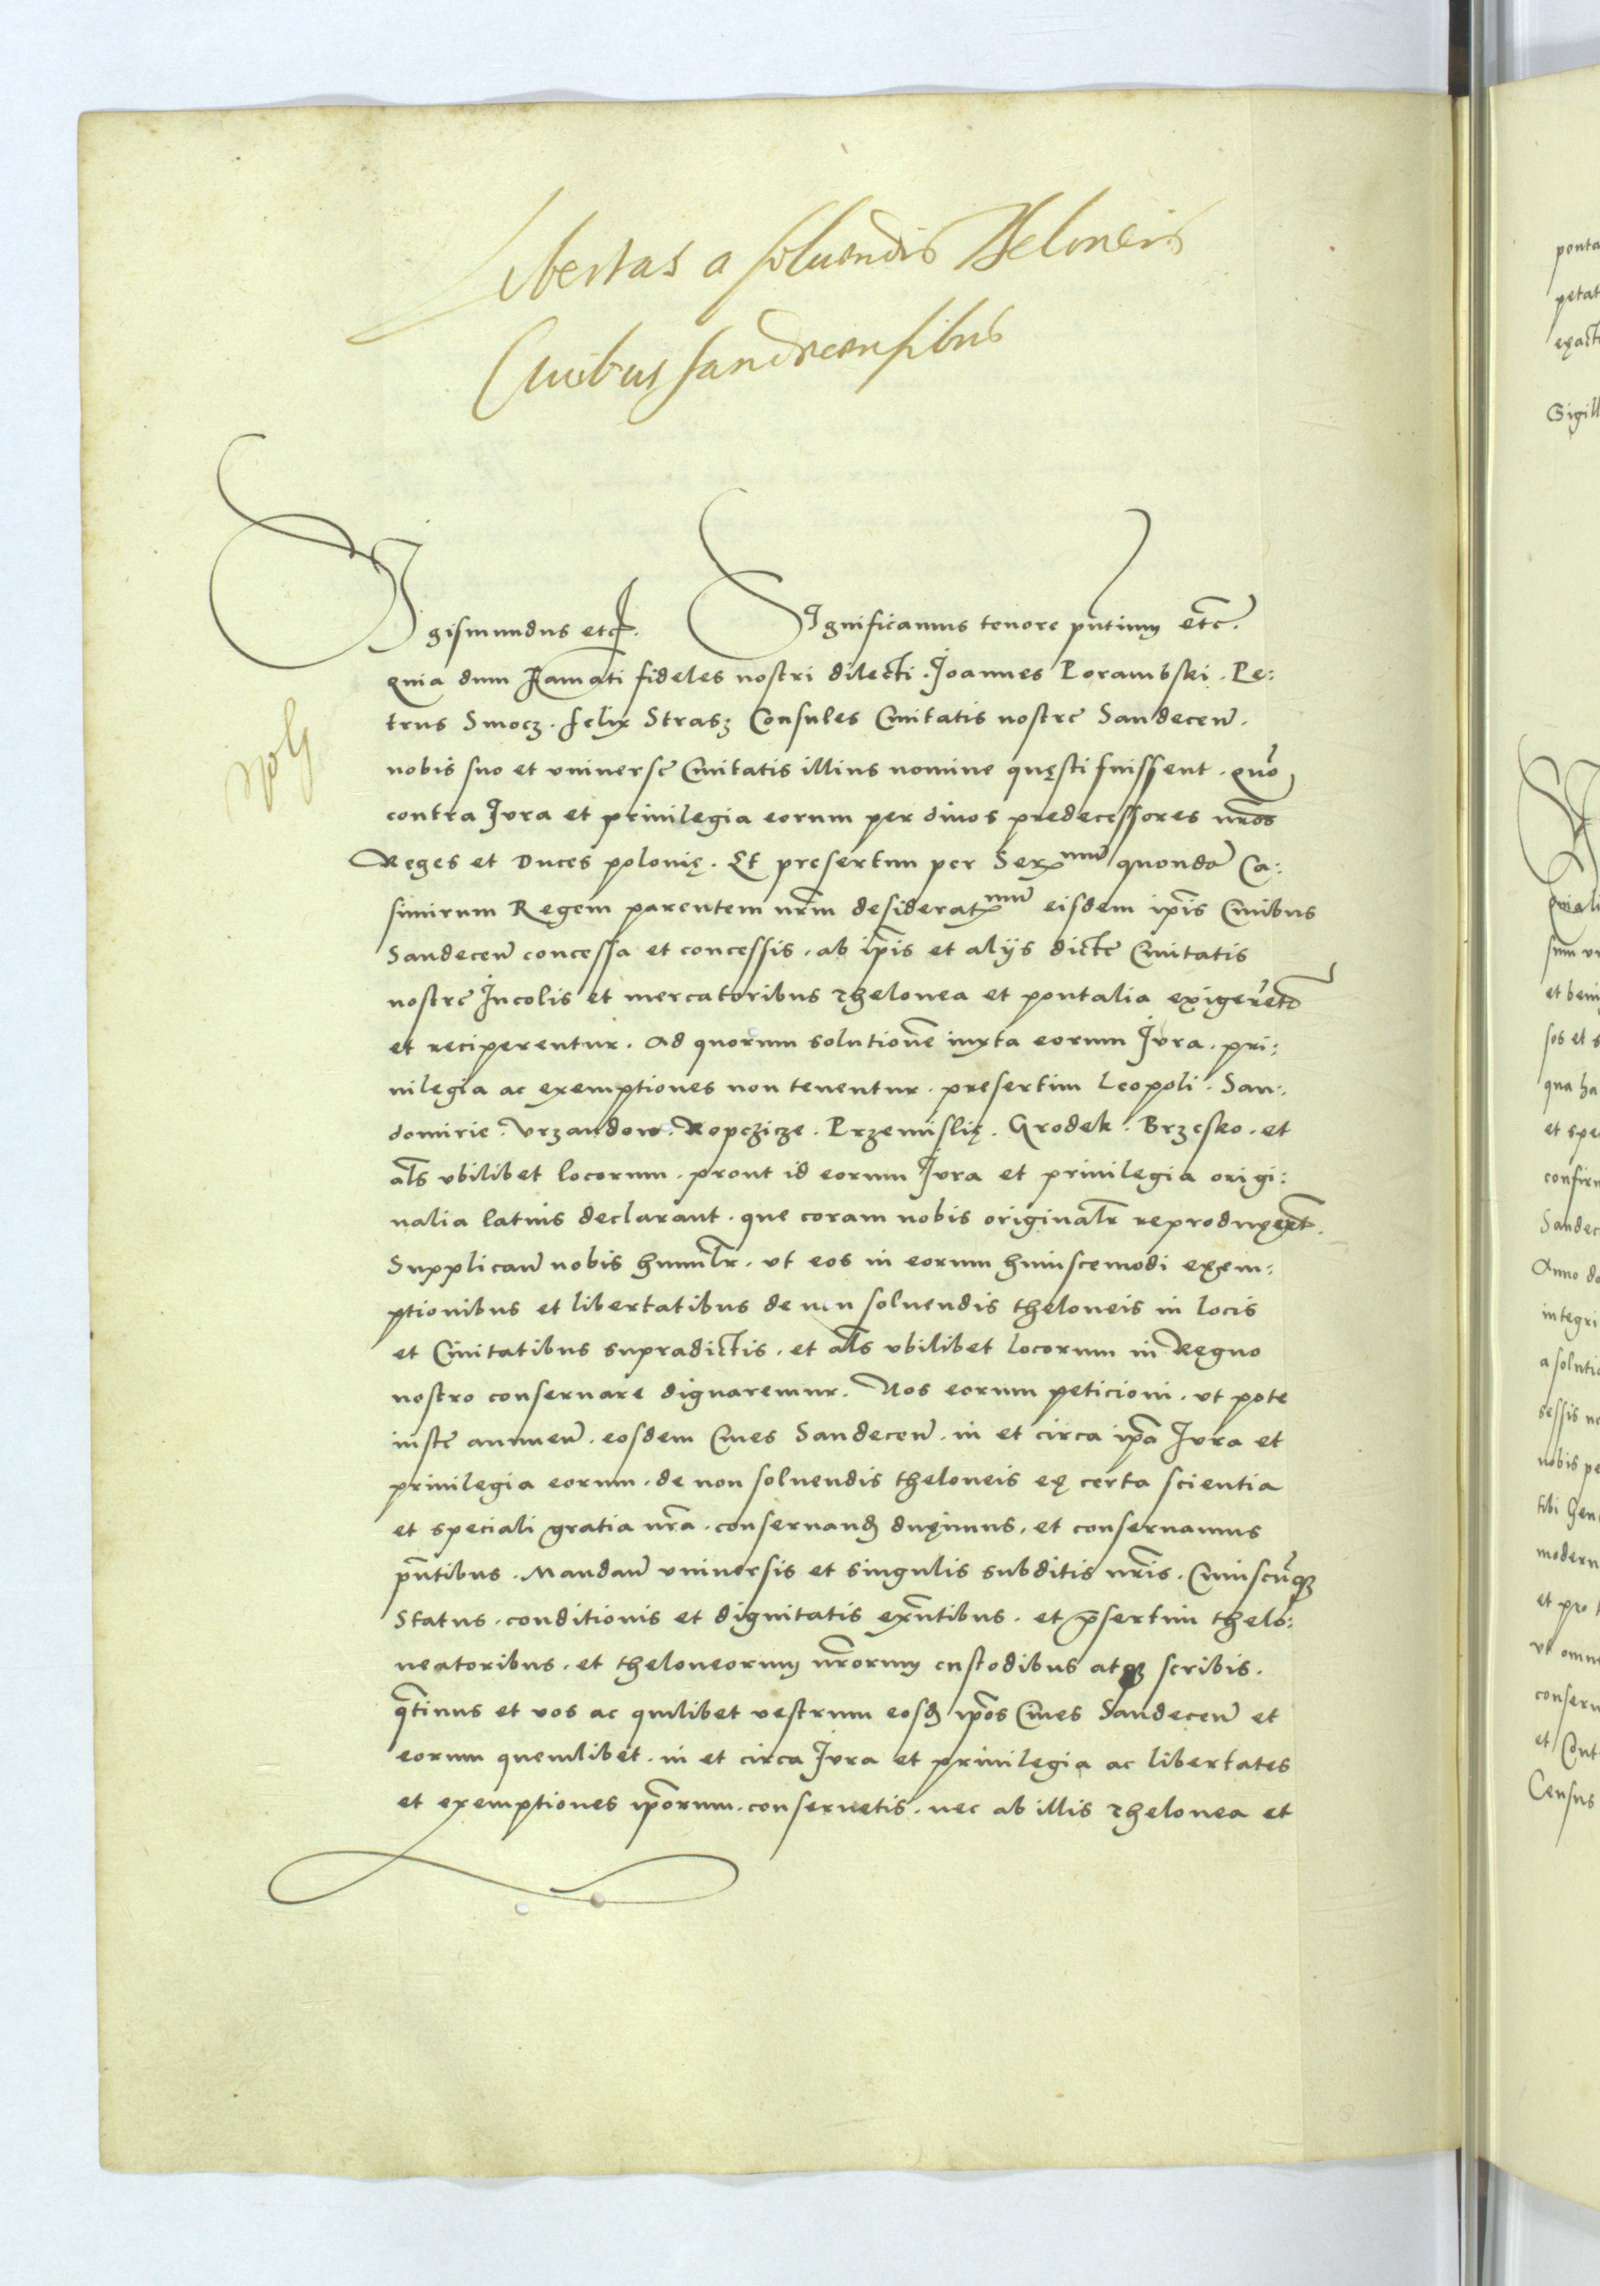 Libertas a soluendis Theloneis
Ciuibus Sandecensibus
Sigismundus etc. Significamus tenore pñtium etc̃.
quia dum Famati fideles nostri dilecti. Joannes Porambski. Pe:
trus Smocz. felix Strasz Consules Ciuitatis nostre Sandeceñ.
nobis suo et vniuerse Ciuitatis illius nomine questi fuissent. quõ
contra Jura et priuilegia eorum per diuos predecessores nr̃os
Reges et Duces polonię. Et presertim per Ser.mum quondã Ca:
simirum Regem parentem nr̃m desiderat.mum eisdem ip̃is Ciuibus
Sandeceñ concessa et concessis. ab ip̃is et alijs dicte Ciuitatis
nostre Jncolis et mercatoribus thelonea et pontalia exiger̃et᷑
et reciperentur. Ad quorum solutionẽ iuxta eorum Jura. pri:
uilegia ac exemptiones non tenentur. presertim Leopoli. San:
domirie. Vrzandow. Ropczicze. Przemislię. Grodek. Brzesko. et
al̃s vbilibet locorum. prout id eorum Jura et priuilegia origi:
nalia latius declarant. que coram nobis originalr̃ reproduxer̃t.
Supplicañ nobis humilr̃. vt eos in eorum huiuscemodi exem:
ptionibus et libertatibus de non soluendis theloneis in locis
et Ciuitatibus supradictis. et al̃s vbilibet locorum in Regno
nostro conseruare dignaremur. Nos eorum peticioni. vt pote
iuste annueñ. eosdem Ciues Sandeceñ. in et circa ip̃a Jura et
priuilegia eorum. de non soluendis theloneis ex certa scientia
et speciali gratia nr̃a. conseruand̃ duximus. et conseruamus
pñtibus. Mandañ vniuersis et singulis subditis nr̃is. Cuiuscũqꝫ
Status. conditionis et dignitatis exñtibus. et p̃sertim thelo:
neatoribus. et theloneorum nr̃orum custodibus atqꝫ scribis.
q̃tinus et vos ac quilibet vestrum eosd̃ ip̃os Ciues Sandeceñ et
eorum quemlibet. in et circa Jura et priuilegia ac libertates
et exemptiones ip̃orum. conseruetis. nec ab illis thelonea et